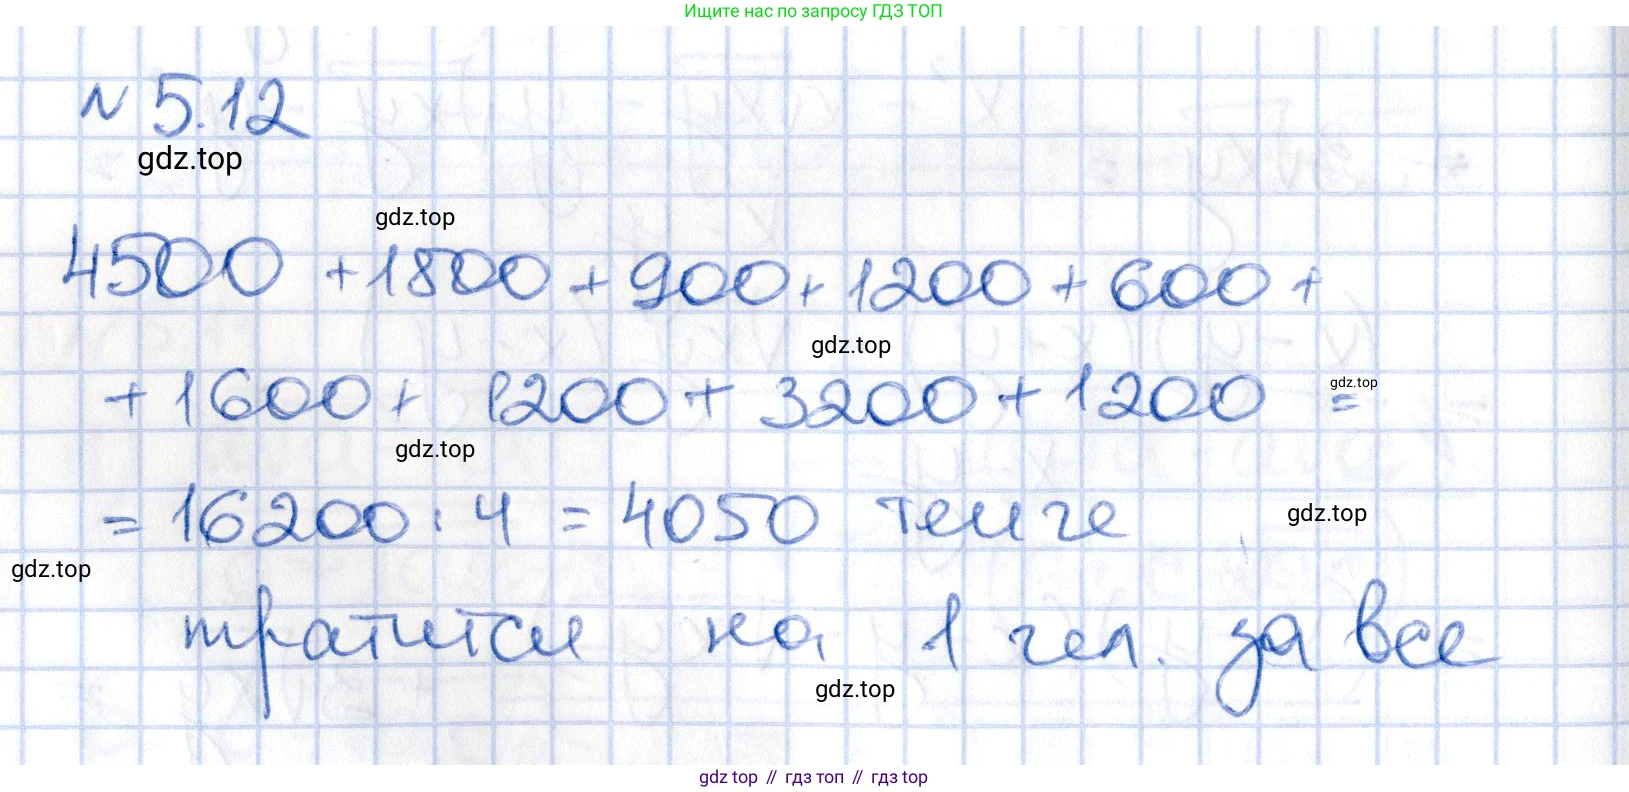 Ищите нас по запросу ГДЗ ТОП
N 5.12
gdz.top
gdz.top
4500 +1800 + 900 + 1200 + 600 +
gdz.top
+ 1600 + 1200 + 3200 + 1200 =
gdz.top
gdz.top
= 16200 : 4 = 4050 тенге
gdz.top
gdz.top
тратится на 1 чел. за все
gdz.top
gdz top // гдз топ // гдз top